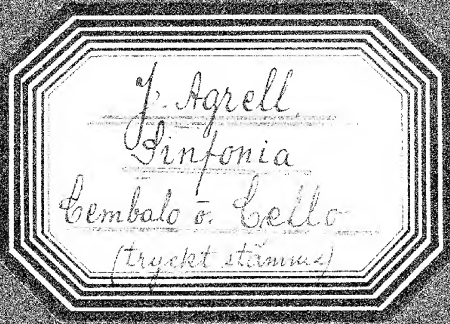 J. Agrell.
Sinfonia
Cembalo o. Cello
(tryckt stämma)